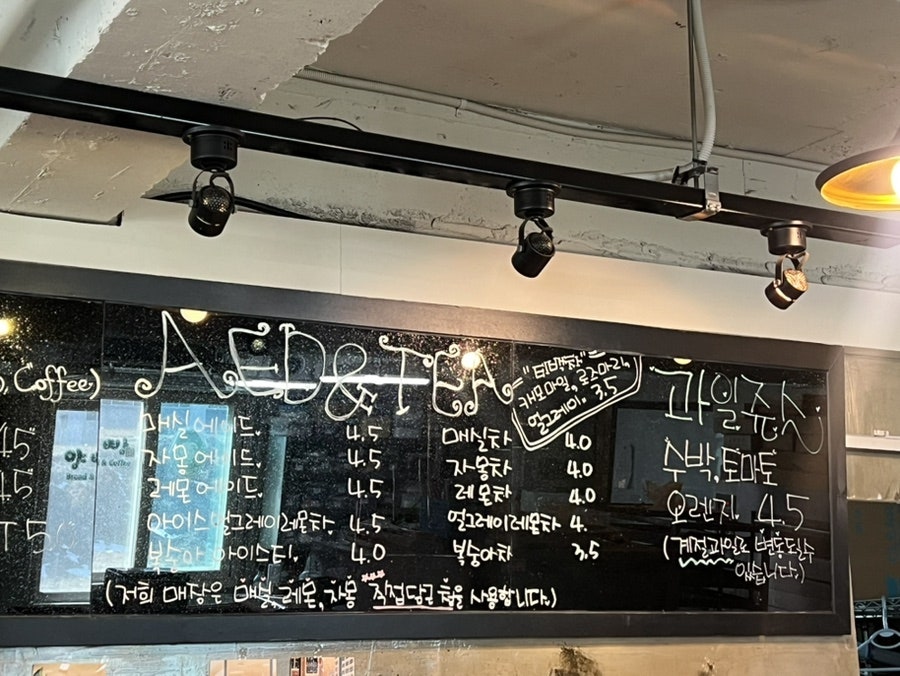 , Coffee)
45
45
T 5
AED & TEA
매실에이드. 4.5
자몽에이드. 4.5
레몬에이드. 4.5
아이스얼그레이레몬차. 4.5
복숭아 아이스티. 4.0
"티백차"
캐모마일, 로즈마리,
얼그레이. 3.5
매실차 4.0
자몽차 4.0
레몬차 4.0
얼그레이레몬차 4.
복숭아차 3.5
(저희 매장은 매실, 레몬, 자몽 직접담근 청을 사용합니다.)
과일쥬스
수박, 토마토
오렌지. 4.5
(계절과일로 변동될수
있습니다.)
& Coffee